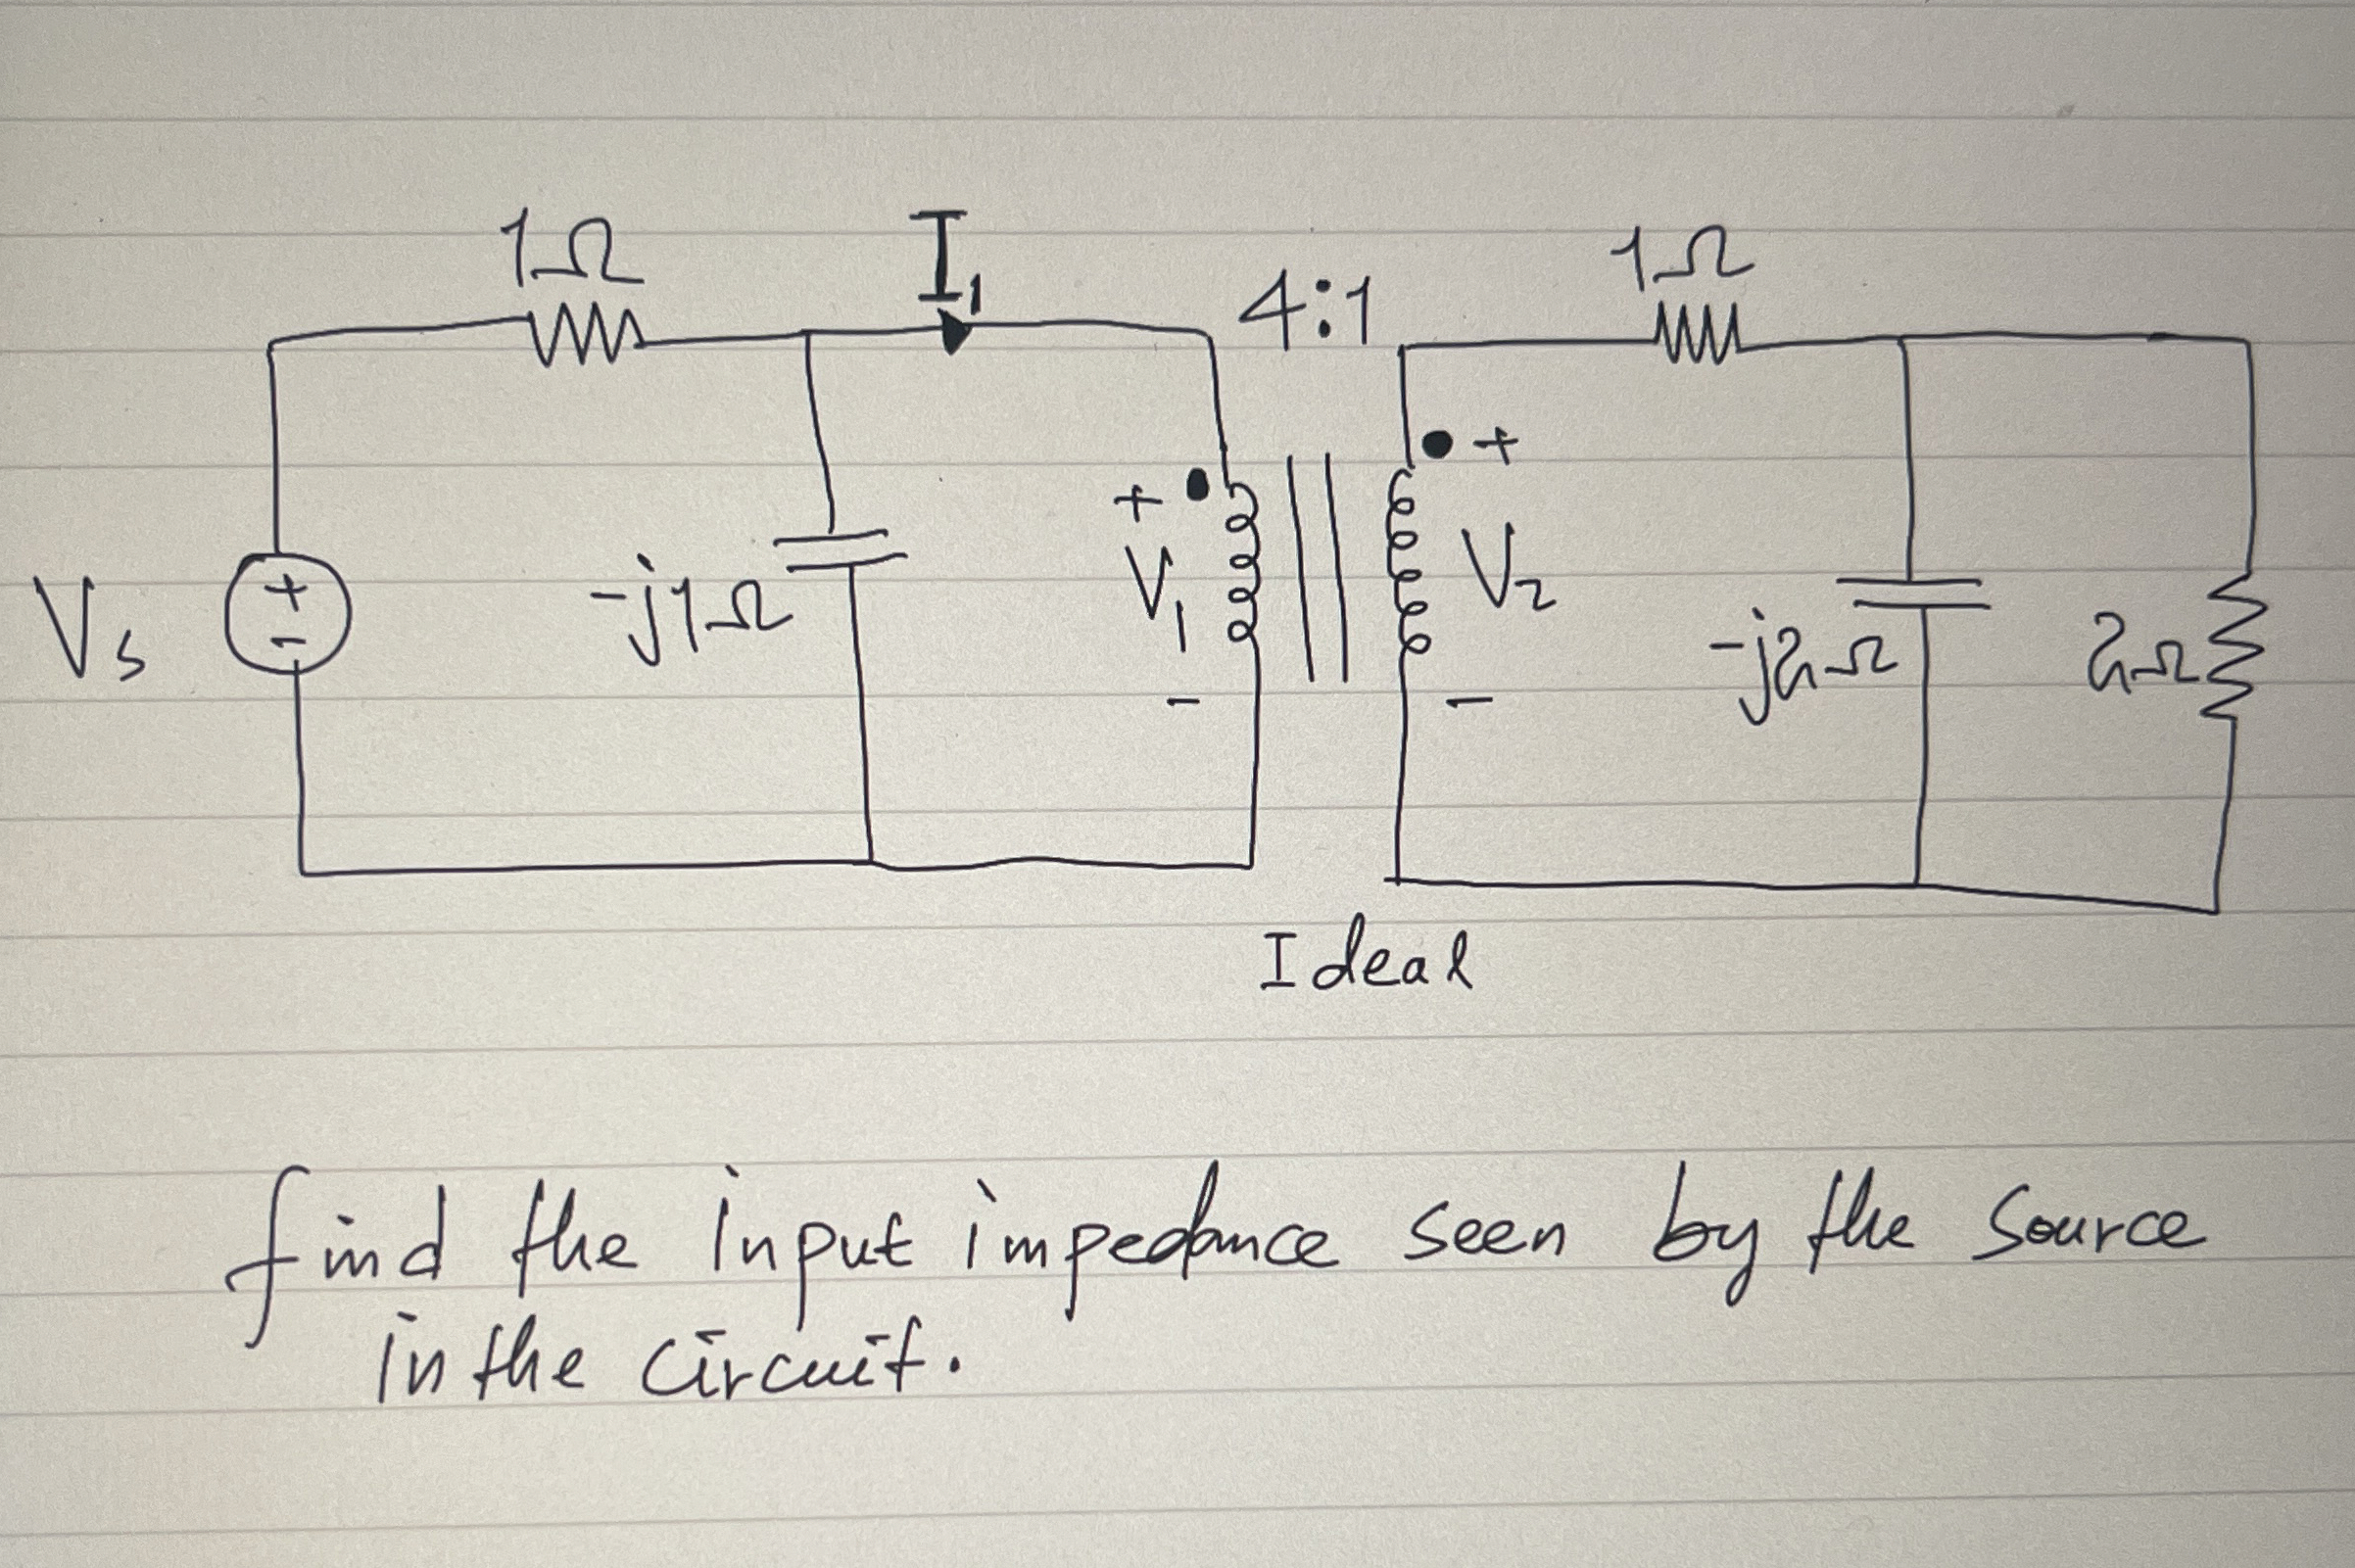 1Ω
I₁
4:1
1Ω
+
+
Vs
+
-
-j1Ω
V₁
V₂
-j2Ω
2Ω
-
-
Ideal
find the input impedance seen by the source
in the circuit.